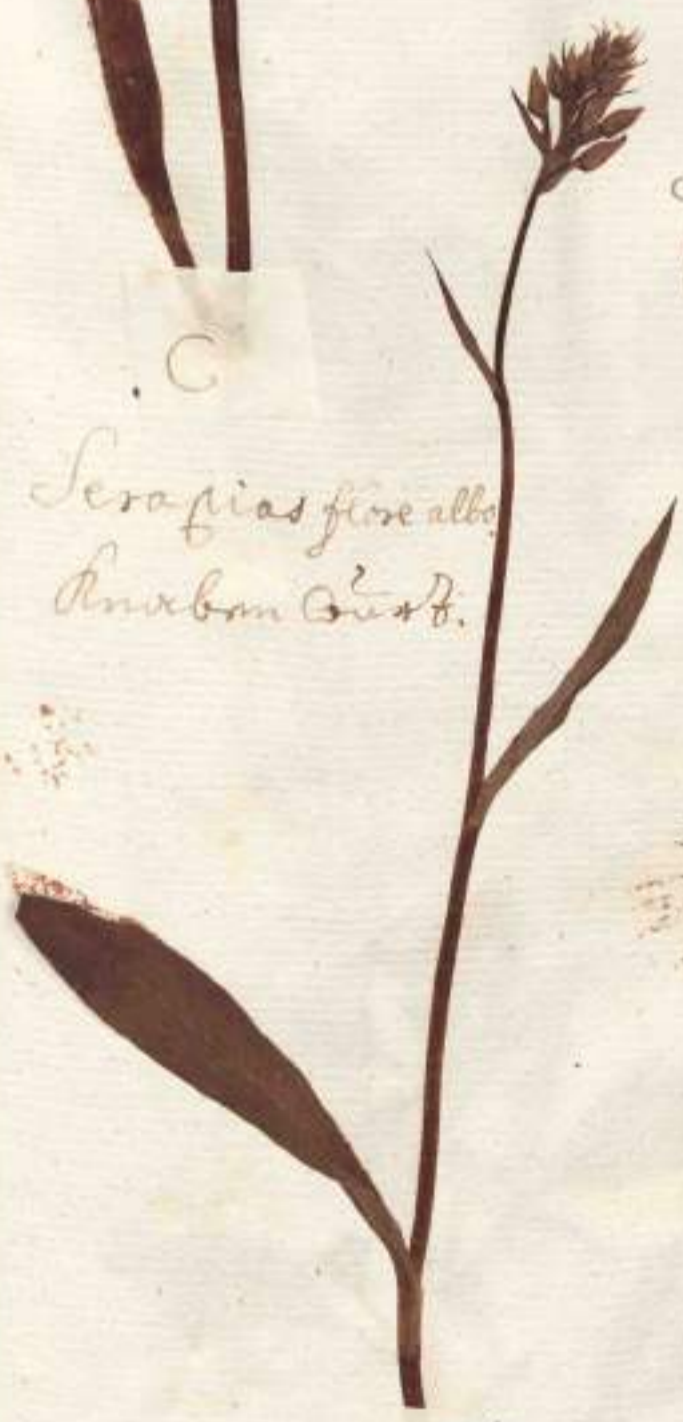 C
Serapias flore albo
Knaben Wurtz.